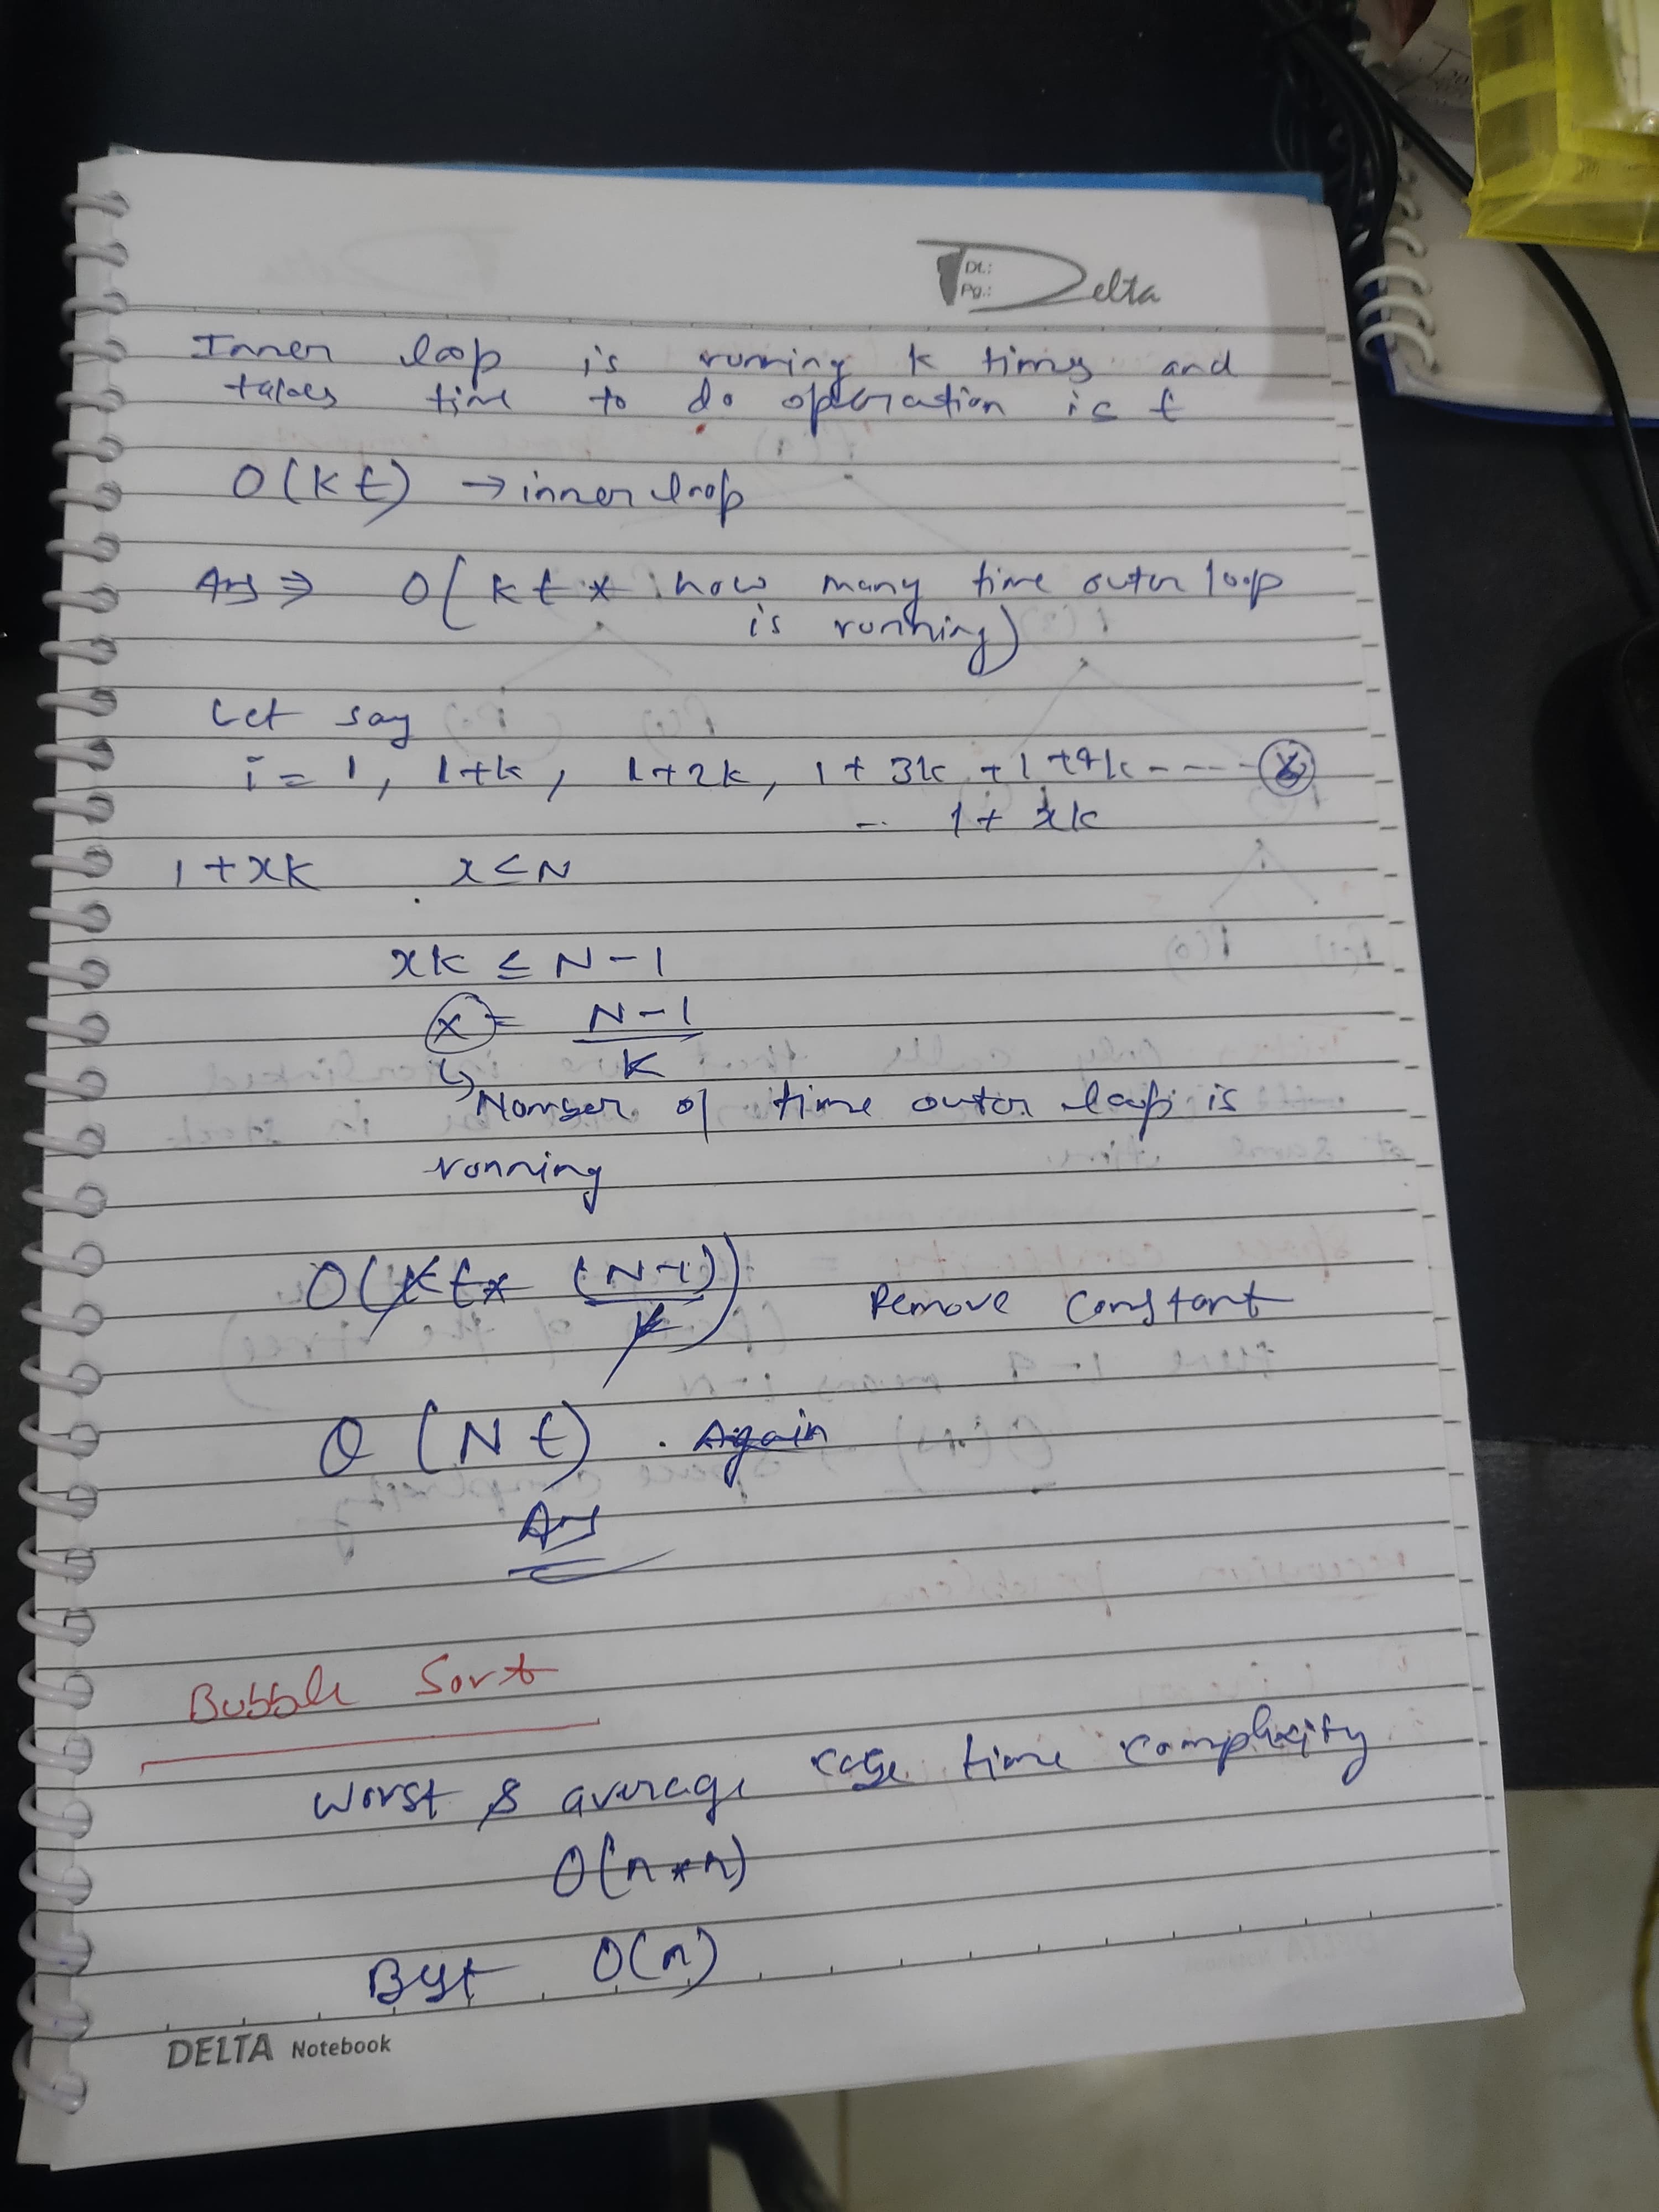 Dt.:
Pg.:
Delta
Inner loop is running k times and
takes time to do operation is t
O(kt) → inner loop
Ans ⇒ O(kt * how many time outer loop
is running)
Let say
i = 1, 1+k, 1+2k, 1+3k + 1+4k ----
-- 1+xk
1+xk x≤N
xk ≤ N-1
x = N-1
k
↳ Number of time outer loop is
running
O(kt* (N-1)) Remove constant
k
O(Nt). Again
Ans
Bubble Sort
Worst & average case time complexity
O(n*n)
Best O(n)
DELTA Notebook